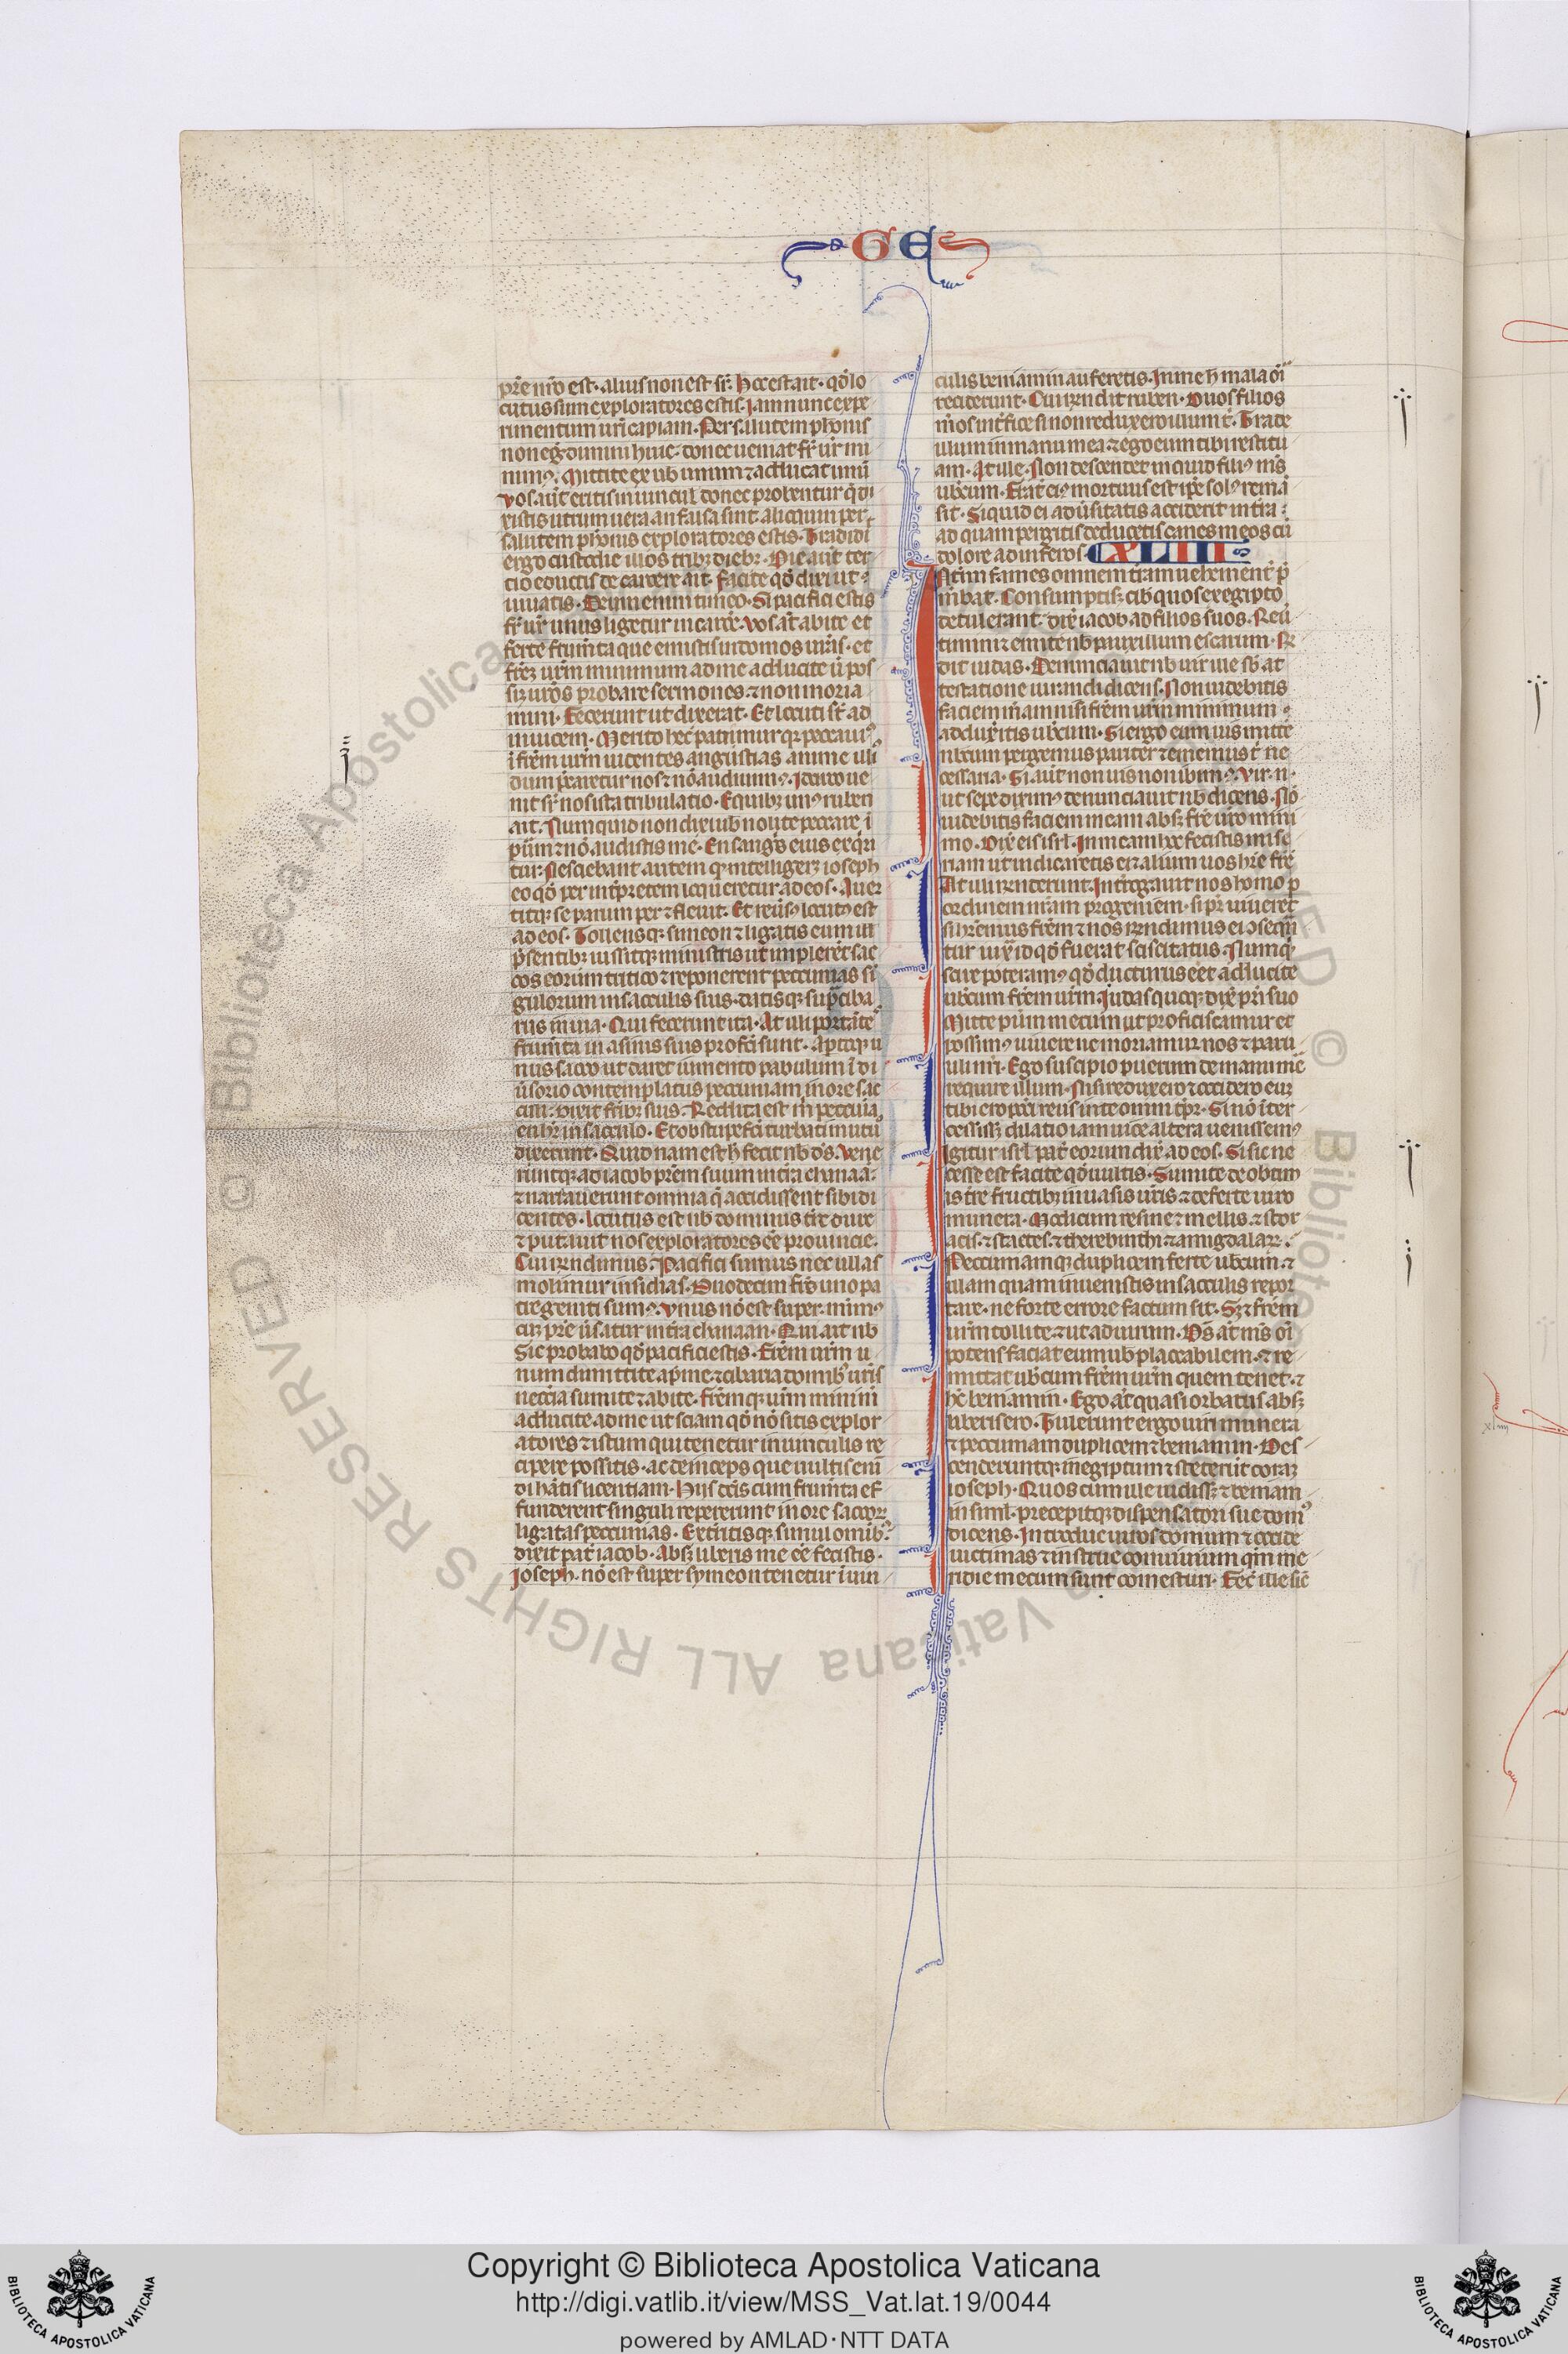 GE
pr̄e nr̄o est· alius non est sr̄· Hoc est ait· qđ lo
cutus sum exploratores estis· Jam nunc expe
rimentum ur̄i capiam· Per salutem ph̄onis
non egrediemini hinc· donec ueniat fr̄ ur̄ mi
nimꝰ· Mittite ex uob unum ⁊ adducat eum
Vos aūt eritis in uinculis donec probentur q̄ di
xistis utrum uera an falsa sint alioquin per
salutem ph̄onis exploratores estis· Tradidit
ergo custodie illos tribꝫ diebꝫ· Die aūt ter
cio eductis de carcere ait· facite qđ dixi ut
uiuatis· Deum enim timeo· Si pacifici estis
fr̄ ur̄ unus ligetur in carcere· Vos aūt abite et
ferte frum̄ta que emistis in domos ur̄as· et
fr̄em ur̄m minimum ad me adducite ut pos
sim ur̄os probare sermones· ⁊ non moria
mini· Fecerunt ut dixerat· Et locuti st̄ ad
inuicem· Merito hec patimur qꝫ peccauimꝰ
ī fr̄em nr̄m uidentes angustias anime illiꝰ
dum p̄caretur nos ⁊ nō audiuimꝰ· Idcirco ue
nit sr̄ nos ista tribulatio· E quibꝫ unꝰ ruben
ait· Numquid non dixi uob nolite peccare ī
pūm ⁊ nō audistis me· En sanguis eius exq̄ri
tur· Nesciebant autem qꝫ intelligeret ioseph
eo qđ per int̄pretem loqueretur ad eos· Auer
titqꝫ se parum per ⁊ fleuit· Et reūsꝰ locutꝰ est
ad eos· Tollensqꝫ simeon ⁊ ligans eum ill
p̄sentibꝫ iussitqꝫ ministris ut implerent sac
cos eorum tritico ⁊ reponerent peccunias sī
gulorum in sacculis suis· datisqꝫ supra ciba
riis in uia· Qui fecerunt ita· At illi portantes
frum̄ta in asinis suis profecti sunt· Aptoqꝫ u
nus sacco ut daret iumento pabulum ī di
ūsorio contemplatus peccuniam in ore sac
culi· dixit fr̄ibꝫ suis· Reddita est m̄ peccunia
en hr̄ in sacculo· Et obstupefacti turbatiqꝫ mutuo
dixerunt· Quid nam est h̄ fecit nb d̄s· Vene
runtqꝫ ad iacob pr̄em suum in tr̄a chanaan·
⁊ narrauerunt omnia q̄ accidissent sibi di
centes· Locutus est nb dominus tr̄e dure
⁊ putauit nos exploratores eē prouincie·
Cui rn̄dimus· Pacifici sumus nec ullas
molimur insidias· Duodecim fr̄es uno pa
tre geniti sumꝰ· Vnus nō est super· minimꝰ
cum pr̄e ūsatur in tr̄a chanaan· Qui ait nb
Sic probabo qđ pacifici estis· Fr̄em ur̄m u
num dimittite apd me ⁊ cibaria domibꝫ ur̄is
neccīa sumite ⁊ abite· fr̄emqꝫ ur̄m minimū
adducite ad me ut sciam qđ nō sitis explor
atores ⁊ istum qui tenetur in uinculis re
cipere possitis· ac deinceps que uultis emē
di habeatis licentiam· Hiis dictis cum frum̄ta ef
funderent singuli repererunt in ore saccorum
ligatas peccunias· Exterritisqꝫ simul omnibꝫ
dixit pater iacob· Absqꝫ liberis me eē fecistis·
Joseph· nō est super symeon tenetur ī uin
culis beniamin auferetis· In me h̄ mala oīa
reciderunt· Cui rn̄dit ruben· Duos filios
meos int̄fice si non reduxero illum t̄· Trade
illum in manu mea ⁊ ego eum tibi restitu
am· At ille· Non descendet inquid filiꝰ mr̄s
ub̄cum· Frater eiꝰ mortuus est ipse solꝰ reman
sit· Si quid ei aduersitatis acciderit in tr̄a
ad quam pergitis deducetis canes meos cū
dolore ad inferos· XLIII
INterim fames omnem tr̄am uehementer p̄
mebat· Consumptisqꝫ cibis quos ex egipto
detulerant· dix̄ iacob ad filios suos· Reū
timini ⁊ emite nb pauxillum escarum· R̄n
dit iudas· Denunciauit nb uir ille sub at
testatione iurandi dicens· Non uidebitis
faciem meam nisi fr̄em ur̄m minimum
adduxeritis ub̄cum· Si ergo eum uis mitte
nobiscum pergemus pariter ⁊ ememus t̄ ne
cessaria· Si aūt non uis non ibimꝰ· Vir· n·
ut sepe diximꝰ denunciauit nb dicens· Nō
uidebitis faciem meam absqꝫ fr̄e ur̄o mini
mo· Dix̄ eis isr̄l· In meam hoc fecistis mise
riam ut indicaretis ei ⁊ alium uos habere fr̄em
At illi rn̄derunt· Interrogauit nos homo p̄
ordinem nr̄am progeniem· si pr̄ uiueret
si haberemus fr̄em ⁊ nos rn̄dimus ei ↄsequen
ter iuxta id qđ fuerat sciscitatus· Numqd
scire poteramꝰ qđ dicturus eēt adducite
ub̄cum fr̄em ur̄m· Judas quoqꝫ dix̄ pr̄i suo
Mitte puerum mecum ut proficiscamur et
possimꝰ uiuere ne moriamur nos ⁊ paru
uli nr̄i· Ego suscipio puerum de manu mea
require illum· Nisi reduxero ⁊ reddidero eum
tibi ero peccati reus in te omni tp̄r· Si nō inter
cessisset dilatio iam uice altera uenissemꝰ
Igitur isr̄l pater eorum dix̄ ad eos· Si sic ne
cesse est facite qđ uultis· Sumite de optim
is tr̄e fructibꝫ in uasis ur̄is ⁊ deferte uiro
munera· Modicum resine ⁊ mellis· ⁊ stor
acis· ⁊ stactes· ⁊ therebinthi ⁊ amigdalarum·
Peccuniamqꝫ duplicem ferte ub̄cum· ⁊
illam quam inuenistis in sacculis repor
tate· ne forte errore factum sit· Sꝫ ⁊ fr̄em
ur̄m tollite ⁊ ite ad uirum· Ds̄ aūt mr̄s oī
potens faciat eum uob placabilem· ⁊ re
mittat ub̄cum fr̄em ur̄m quem tenet· ⁊
hc̄ beniamin· Ego aūt quasi orbatus absqꝫ
liberis ero· Tulerunt ergo uiri munera
⁊ peccuniam duplicem ⁊ beniamin· Des
cenderuntqꝫ in egiptum ⁊ steterūt coram
ioseph· Quos cum ille uidisset ⁊ beniam
in simul· precepitqꝫ dispensatori sue domꝰ
dicens· Introduc uiros domum ⁊ occide
uictimas ⁊ instrue conuiuium qm̄ me
ridie mecum sunt comesturi· Fecit ille sic̄
Copyright © Biblioteca Apostolica Vaticana
http://digi.vatlib.it/view/MSS_Vat.lat.19/0044
powered by AMLAD·NTT DATA
BIBLIOTECA APOSTOLICA VATICANA
BIBLIOTECA APOSTOLICA VATICANA